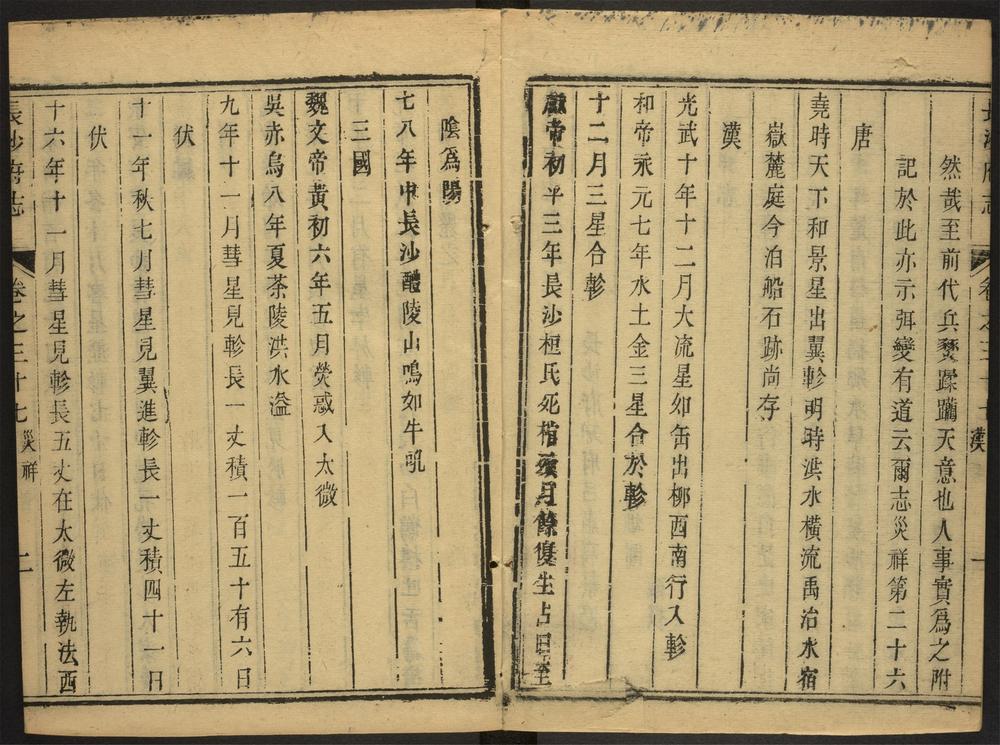 長沙府志 卷之三十七 漢 一
然哉至前代兵燹蹂躪天意也人事實為之附
記於此亦示弭變有道云爾志災祥第二十六
唐
堯時天下和景星出翼軫明時洪水橫流禹治水宿
嶽麓庭今泊船石跡尚存
漢
光武十年十二月大流星如缶出柳西南行入軫
和帝永元七年水土金三星合於軫
十二月三星合軫
獻帝初平三年長沙桓氏死棺斂月餘復生占曰至
陰為陽
七八年中長沙醴陵山鳴如牛吼
三國
魏文帝黃初六年五月熒惑入太微
吳赤烏八年夏茶陵洪水溢
九年十一月彗星見軫長一丈積一百五十有六日
伏
十一年秋七月彗星見翼進軫長一丈積四十一日
伏
十六年十一月彗星見軫長五丈在太微左執法西
長沙府志 卷之三十七 災祥 二